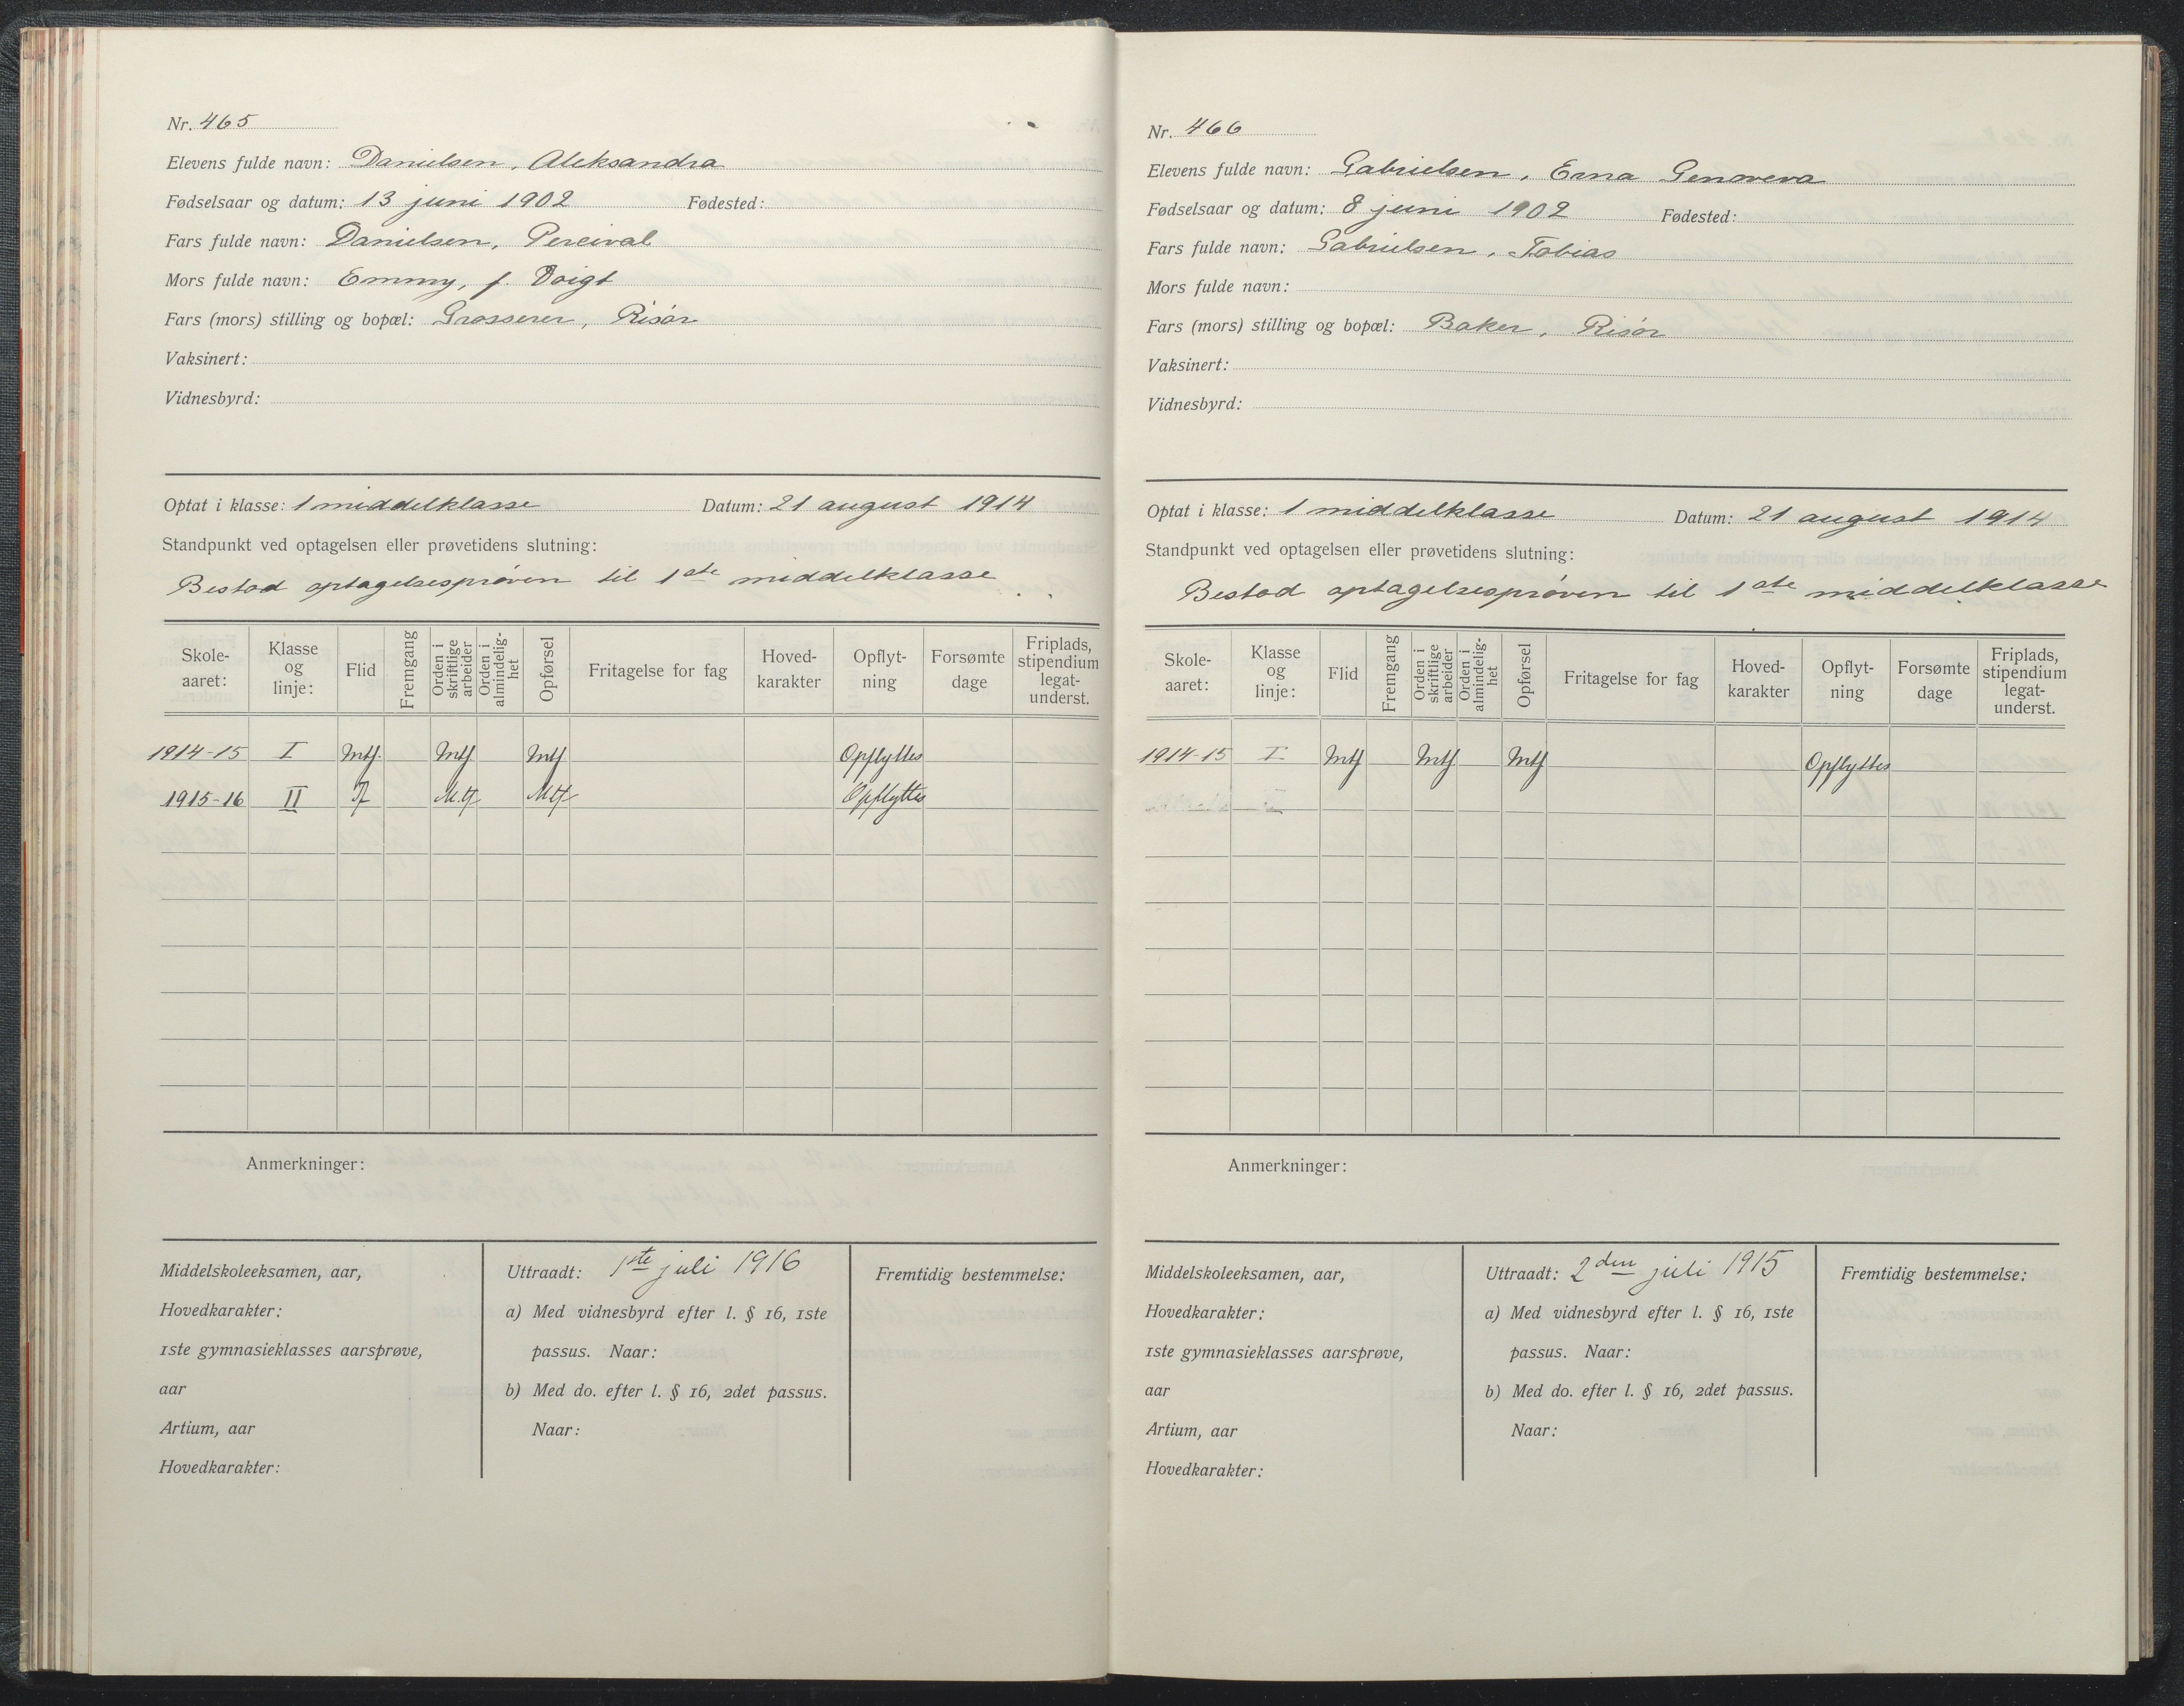 Nr. 465
Elevens fulde navn: Danielsen, Aleksandra
Fødselsaar og datum: 13 juni 1902 Fødested:
Fars fulde navn: Danielsen, Percival
Mors fulde navn: Emmy, f. Voigt
Fars (mors) stilling og bopæl: Grosserer, Risør
Vaksinert:
Vidnesbyrd:
Optat i klasse: 1 middelklasse Datum: 21 august 1914
Standpunkt ved optagelsen eller prøvetidens slutning:
Bestod optagelsesprøven til 1ste middelklasse
Skole-aaret: Klasse og linje: Flid Fremgang Orden i skriftlige arbeider Orden i almindelig-het Opførsel Fritagelse for fag Hoved-karakter Opflyt-ning Forsømte dage Friplads, stipendium legat-underst.
1914-15 I Mtf. Mtf Mtf Opflyttes
1915-16 II Tf M.tf M.tf Opflyttes
Anmerkninger:
Middelskoleeksamen, aar,
Hovedkarakter:
1ste gymnasieklasses aarsprøve,
aar
Artium, aar
Hovedkarakter:
Uttraadt: 1ste juli 1916
a) Med vidnesbyrd efter l. § 16, 1ste
passus. Naar:
b) Med do. efter l. § 16, 2det passus.
Naar:
Fremtidig bestemmelse:
Nr. 466
Elevens fulde navn: Gabrielsen, Erna Genoveva
Fødselsaar og datum: 8 juni 1902 Fødested:
Fars fulde navn: Gabrielsen, Tobias
Mors fulde navn:
Fars (mors) stilling og bopæl: Baker, Risør
Vaksinert:
Vidnesbyrd:
Optat i klasse: 1 middelklasse Datum: 21 august 1914
Standpunkt ved optagelsen eller prøvetidens slutning:
Bestod optagelsesprøven til 1ste middelklasse
Skole-aaret: Klasse og linje: Flid Fremgang Orden i skriftlige arbeider Orden i almindelig-het Opførsel Fritagelse for fag Hoved-karakter Opflyt-ning Forsømte dage Friplads, stipendium legat-underst.
1914-15 I Mtf Mtf. Mtf Opflyttes
Anmerkninger:
Middelskoleeksamen, aar,
Hovedkarakter:
1ste gymnasieklasses aarsprøve,
aar
Artium, aar
Hovedkarakter:
Uttraadt: 2den juli 1915
a) Med vidnesbyrd efter l. § 16, 1ste
passus. Naar:
b) Med do. efter l. § 16, 2det passus.
Naar:
Fremtidig bestemmelse: